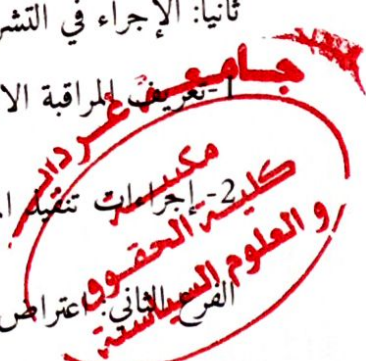 ثانيا: الإجراء في التشر
1-تعريف المراقبة الا
2- إجراءات تنفيذ ا
الفرع الثاني: اعتراض
جامعة غرداية
مكتبة
كلية الحقوق
و العلوم السياسية